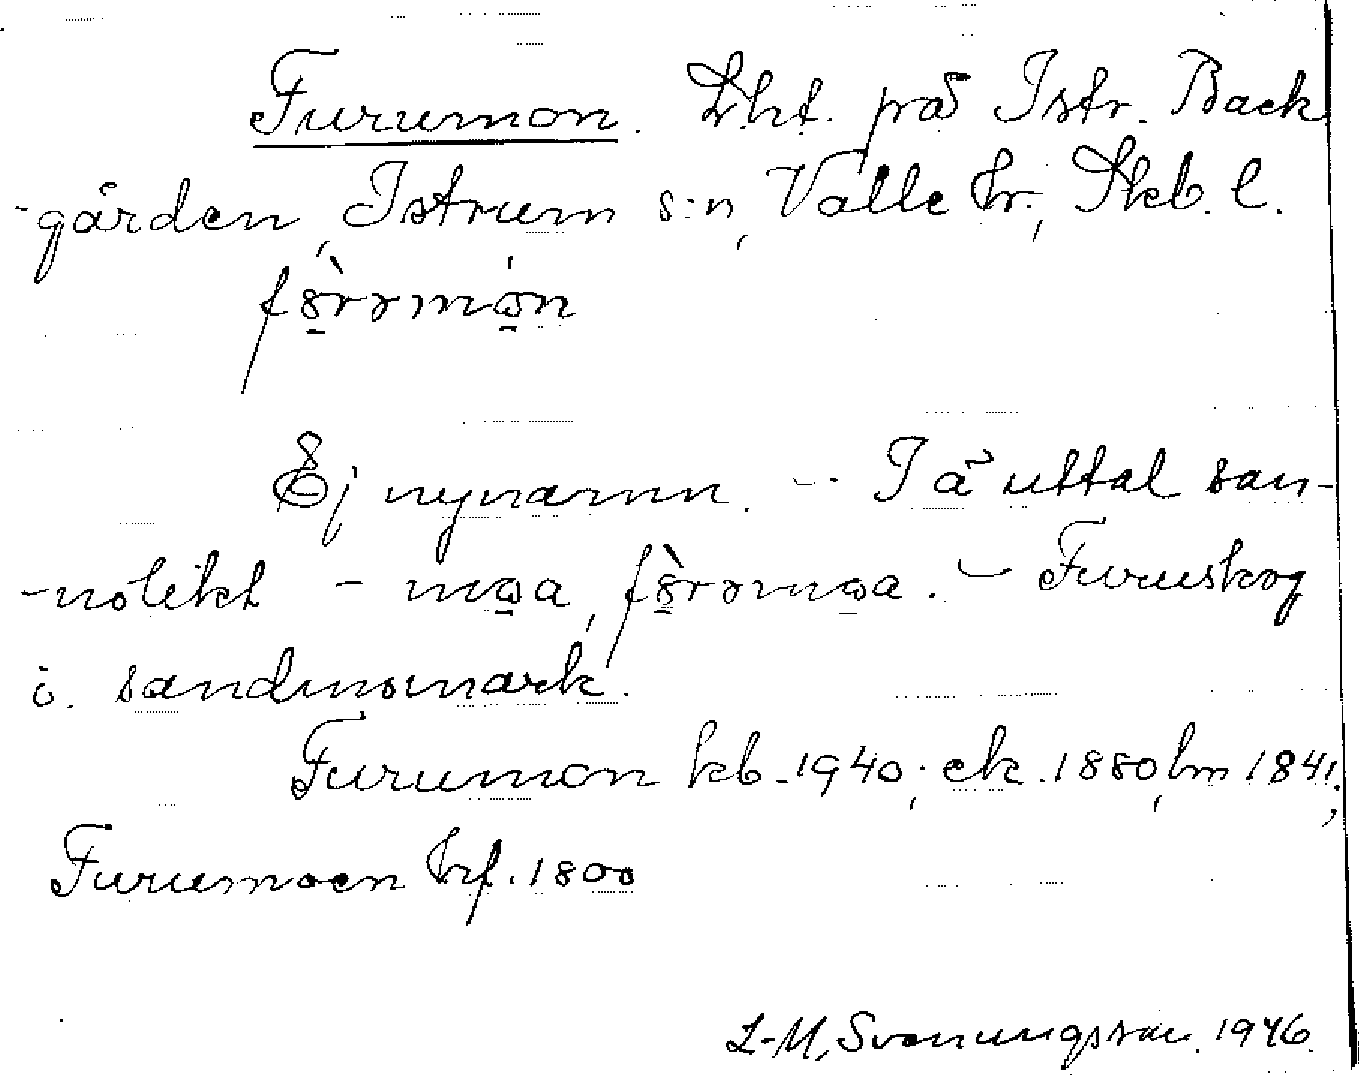 Furumon. Lht. på Istr. Back
-gården, Istrum s:n, Valle hr., Skb. l.
fö̀rrmón
Ej nynamn. - I ä uttal san-
-nolikt - moa, fö̀rrmoa. - Furuskog
i sandmomark.
Furumon kb. 1940; ek. 1880, lm 1841;
Furumoen hf. 1800
L-M, Svenungsson. 1946.